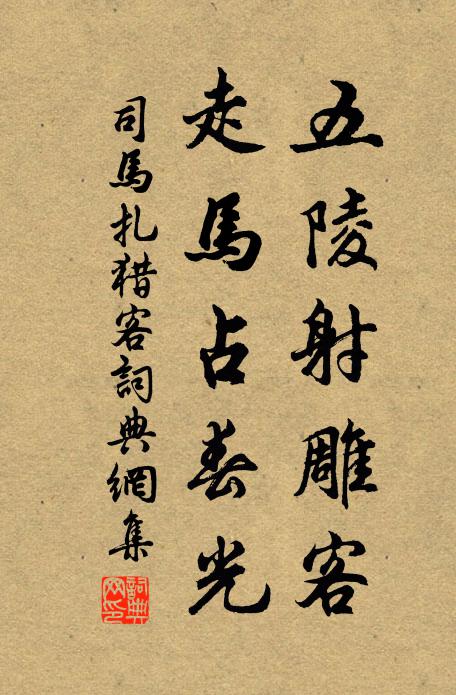 五陵射雕客
走馬占春光
司馬扎猎客詞典網集
詞典网印